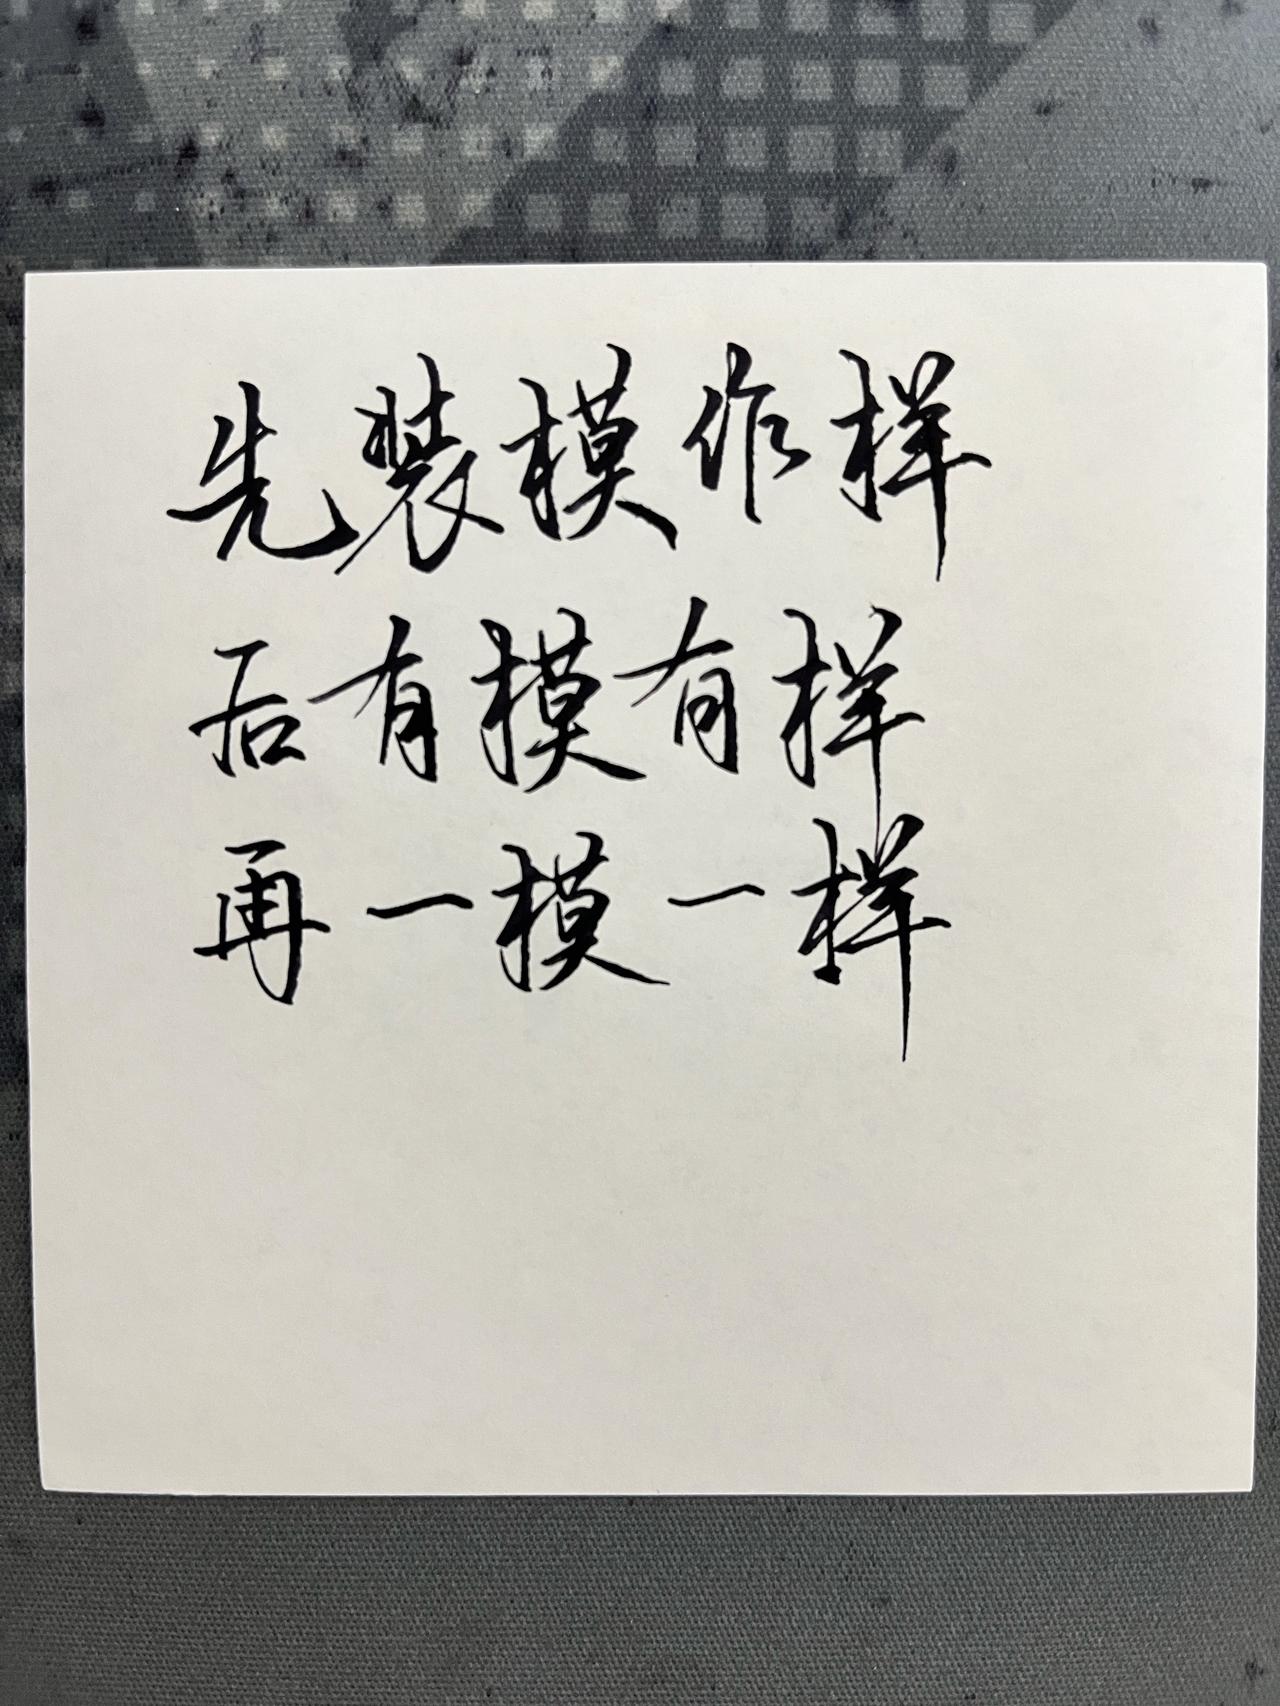 先装模作样
后有模有样
再一模一样